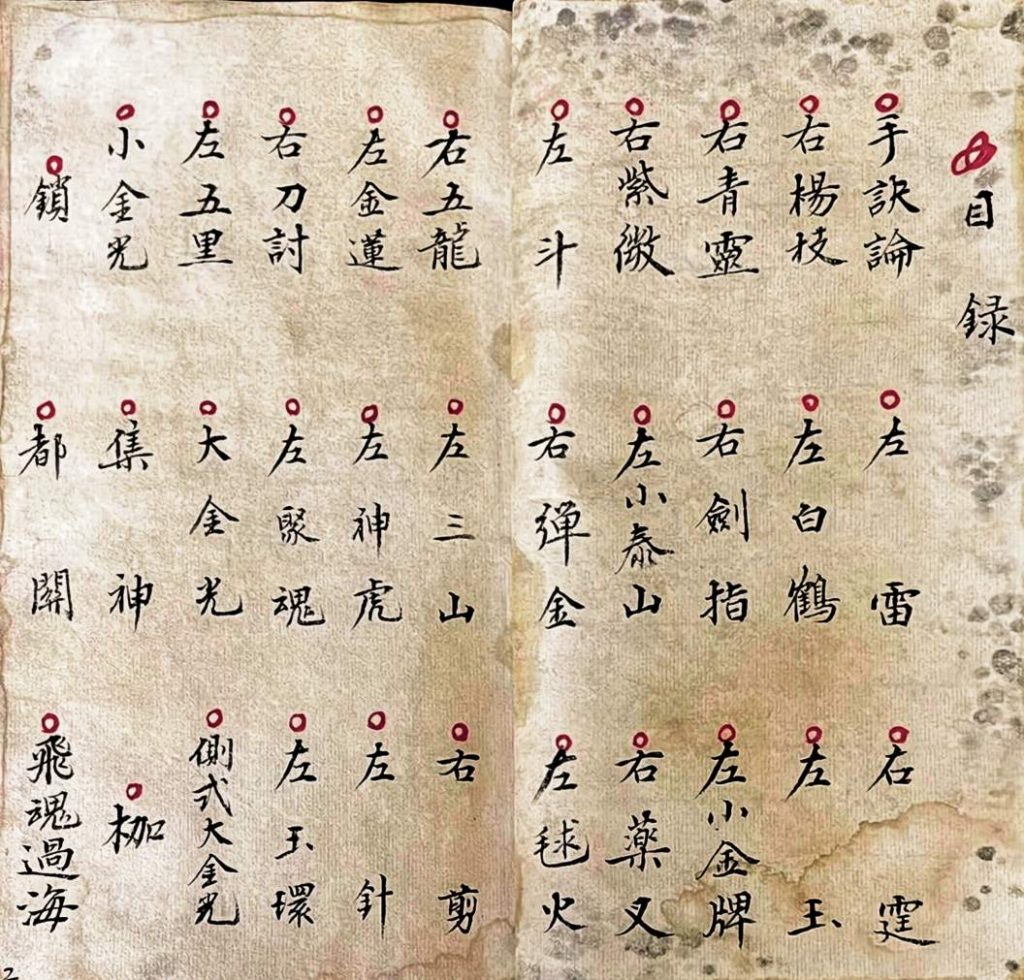 目録
手訣論 左雷 右霆
右楊枝 左白鶴 左玉
右青靈 右劍指 左小金牌
右紫微 左小泰山 右薬叉
左斗 右彈金 左毬火
右五龍 左三山 右剪
左金蓮 左神虎 左針
右刀討 左聚魂 左玉環
左五里 大金光 側式大金光
小金光 集神 枷
鎖 都關 飛魂過海
2